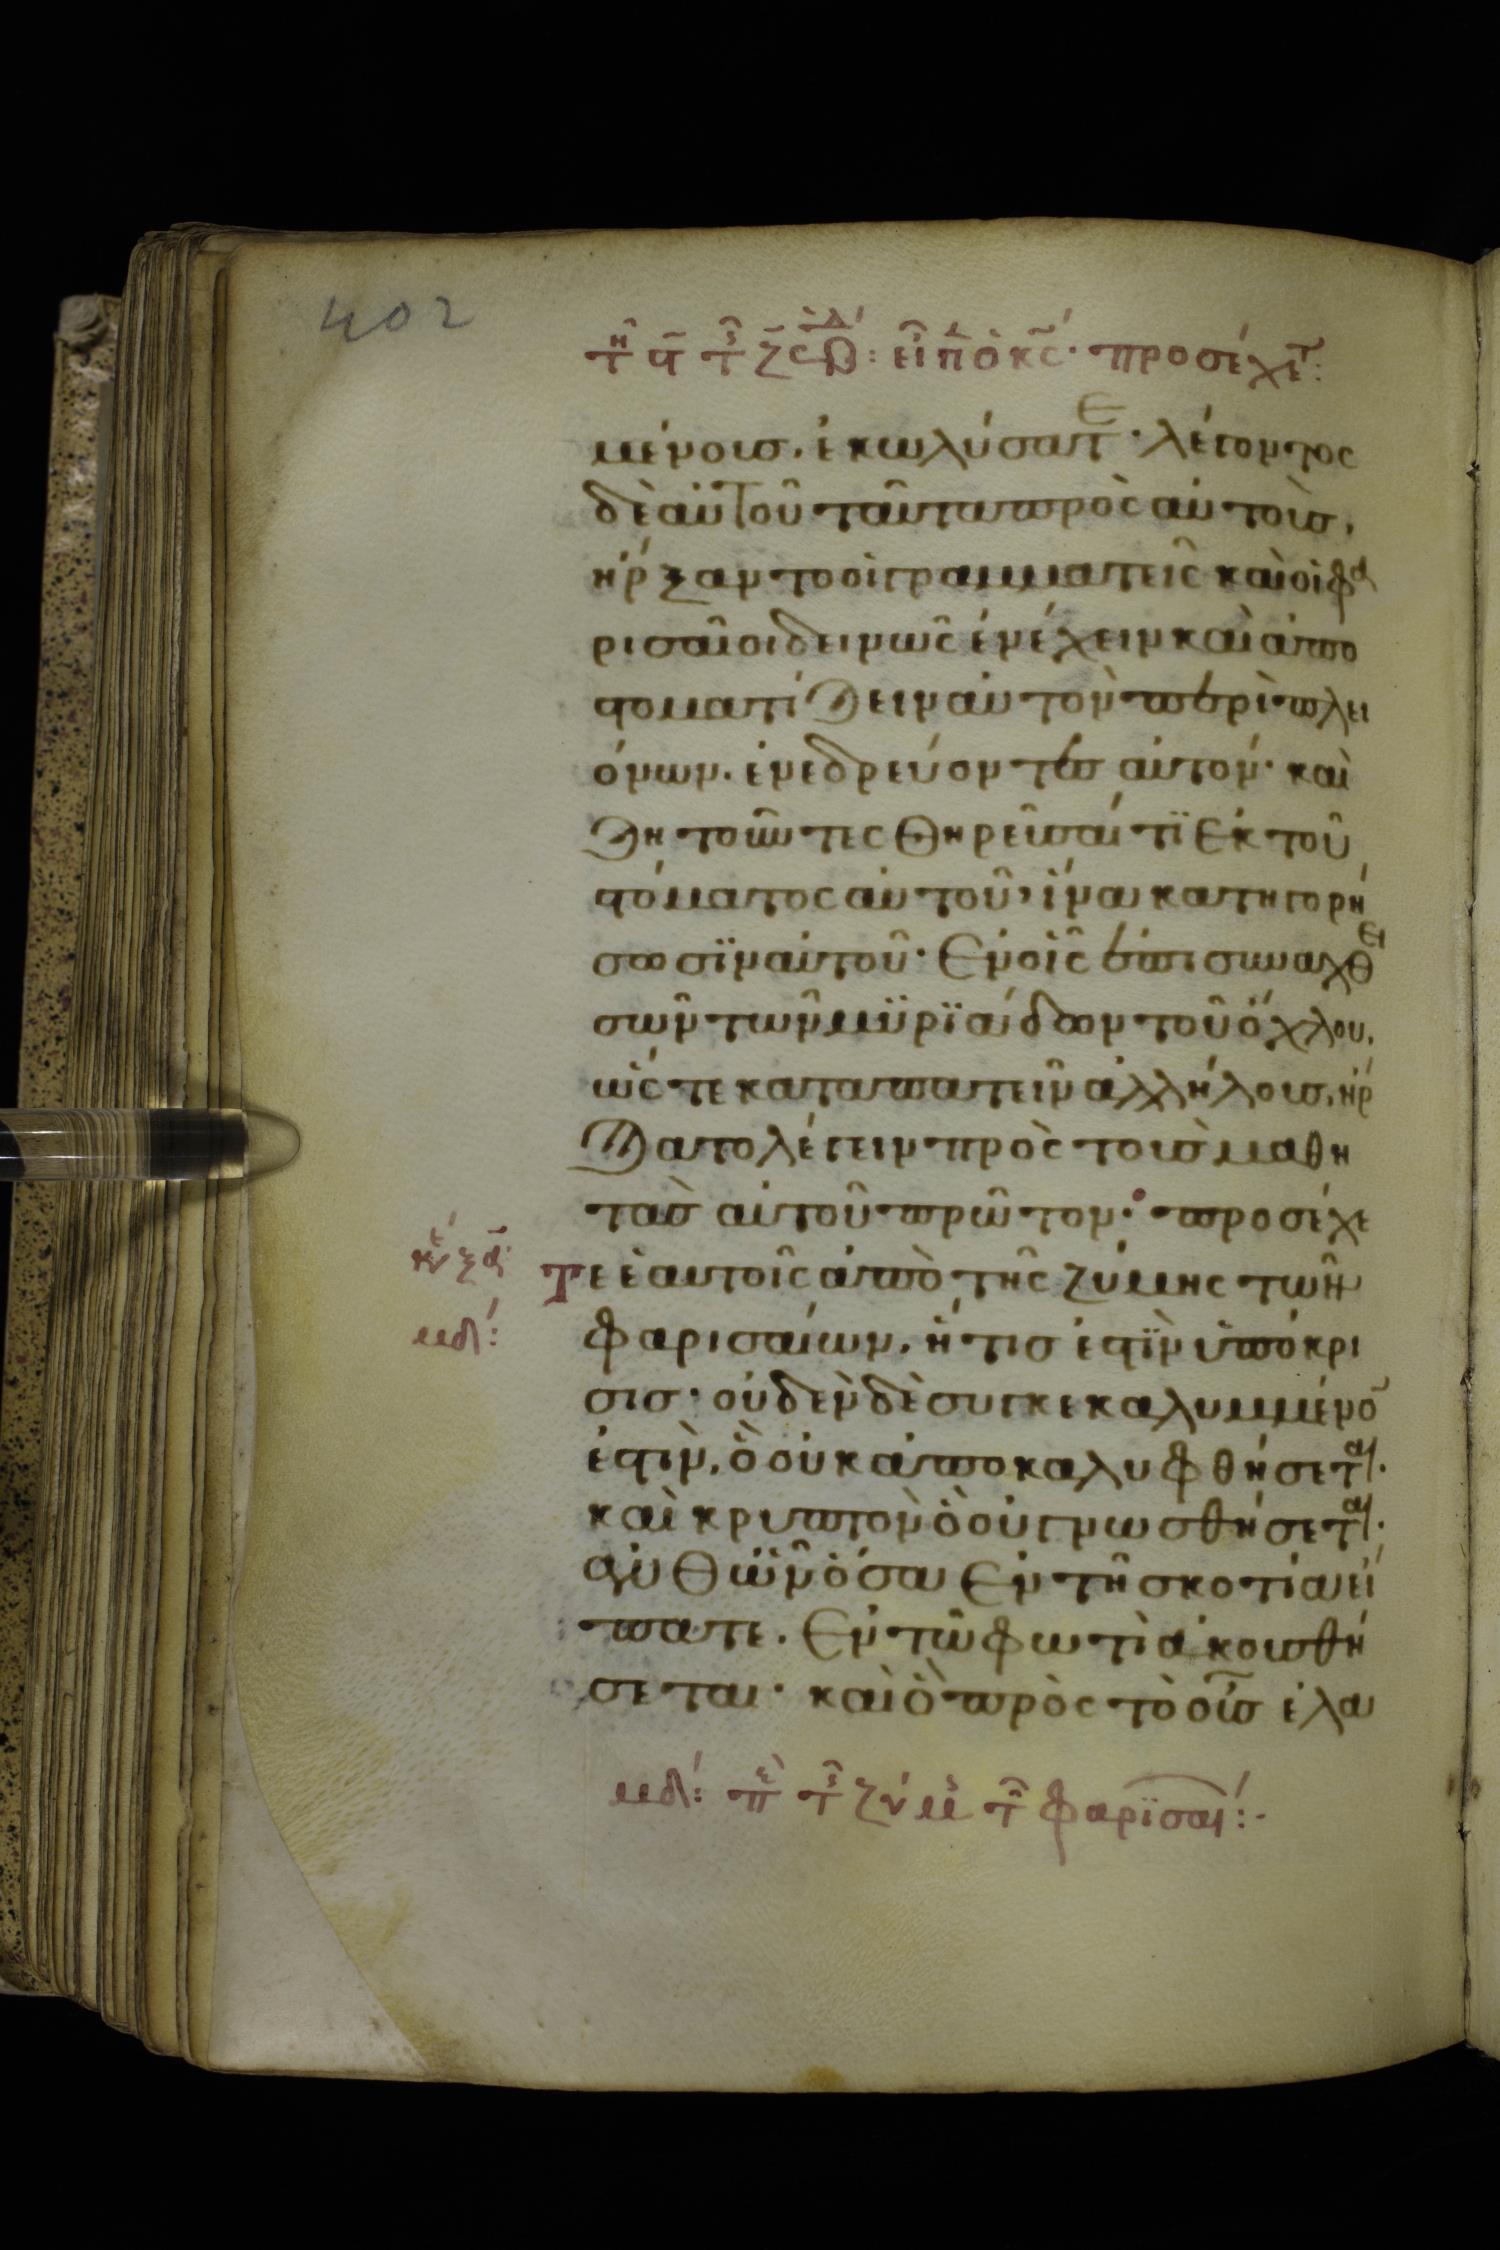 402
τῇ ϛ τῆς ζ ἑβδ: εἶπεν ὁ κς· προσέχετ:
μένους, ἐκωλύσατε· λέγοντος
δὲ αὐτοῦ ταῦτα πρὸς αὐτοὺς,
ἤρξαντο οἱ γραμματεῖς καὶ οἱ φα
ρισαῖοι δεινῶς ἐνέχειν καὶ ἀπο
στοματίζειν αὐτὸν περὶ πλει
όνων. ἐνεδρεύοντες αὐτόν· καὶ
ζητοῦντες θηρεῦσαί τϊ ἐκ τοῦ
στόματος αὐτοῦ, ἵνα κατηγορή
σωσϊν αὐτοῦ· Ἐν οἷς ἐπισυναχθει
σῶν τῶν μϋρϊάδων τοῦ ὄχλου,
ὥς τε καταπατεῖν ἀλλήλους, ἤρ
ξατο λέγειν πρὸς τοὺς μαθη
τὰς αὐτοῦ πρῶτον· προσέχε
τε ἑαυτοῖς ἀπὸ τῆς ζύμης τῶν
φαρισαίων, ἥτις ἐστϊν ὑπόκρι
σις· οὐδὲν δὲ συγκεκαλυμμένο̅
ἐστιν, ὃ οὐκ ἀποκαλυφθήσεται·
καὶ κρυπτὸν ὃ οὐ γνωσθήσεται·
ἀνθῶν ὅσα ἐν τῇ σκοτία εἴ
πατε. Ἐν τῷ φωτὶ ἀκουσθή
σεται· καὶ ὃ πρὸς τὸ οὖς ἐλα
μδ: π τ ζύμ τ φαρϊσαι:-